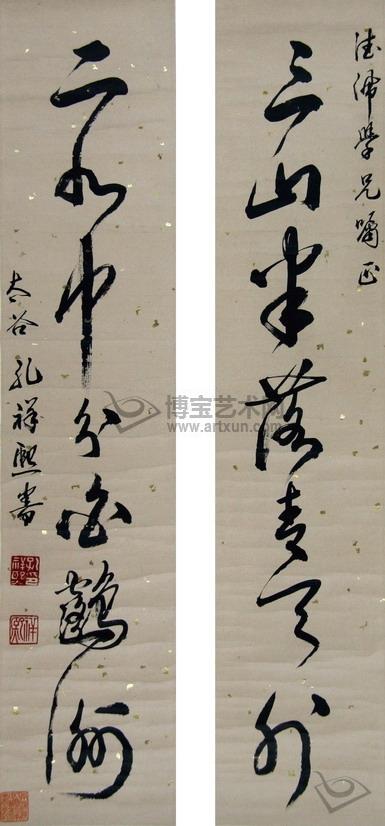 學兄囑正
三山半落青天外
二水中分白鶴洲
太谷孔祥熙書
博宝艺术网
www.artxun.com